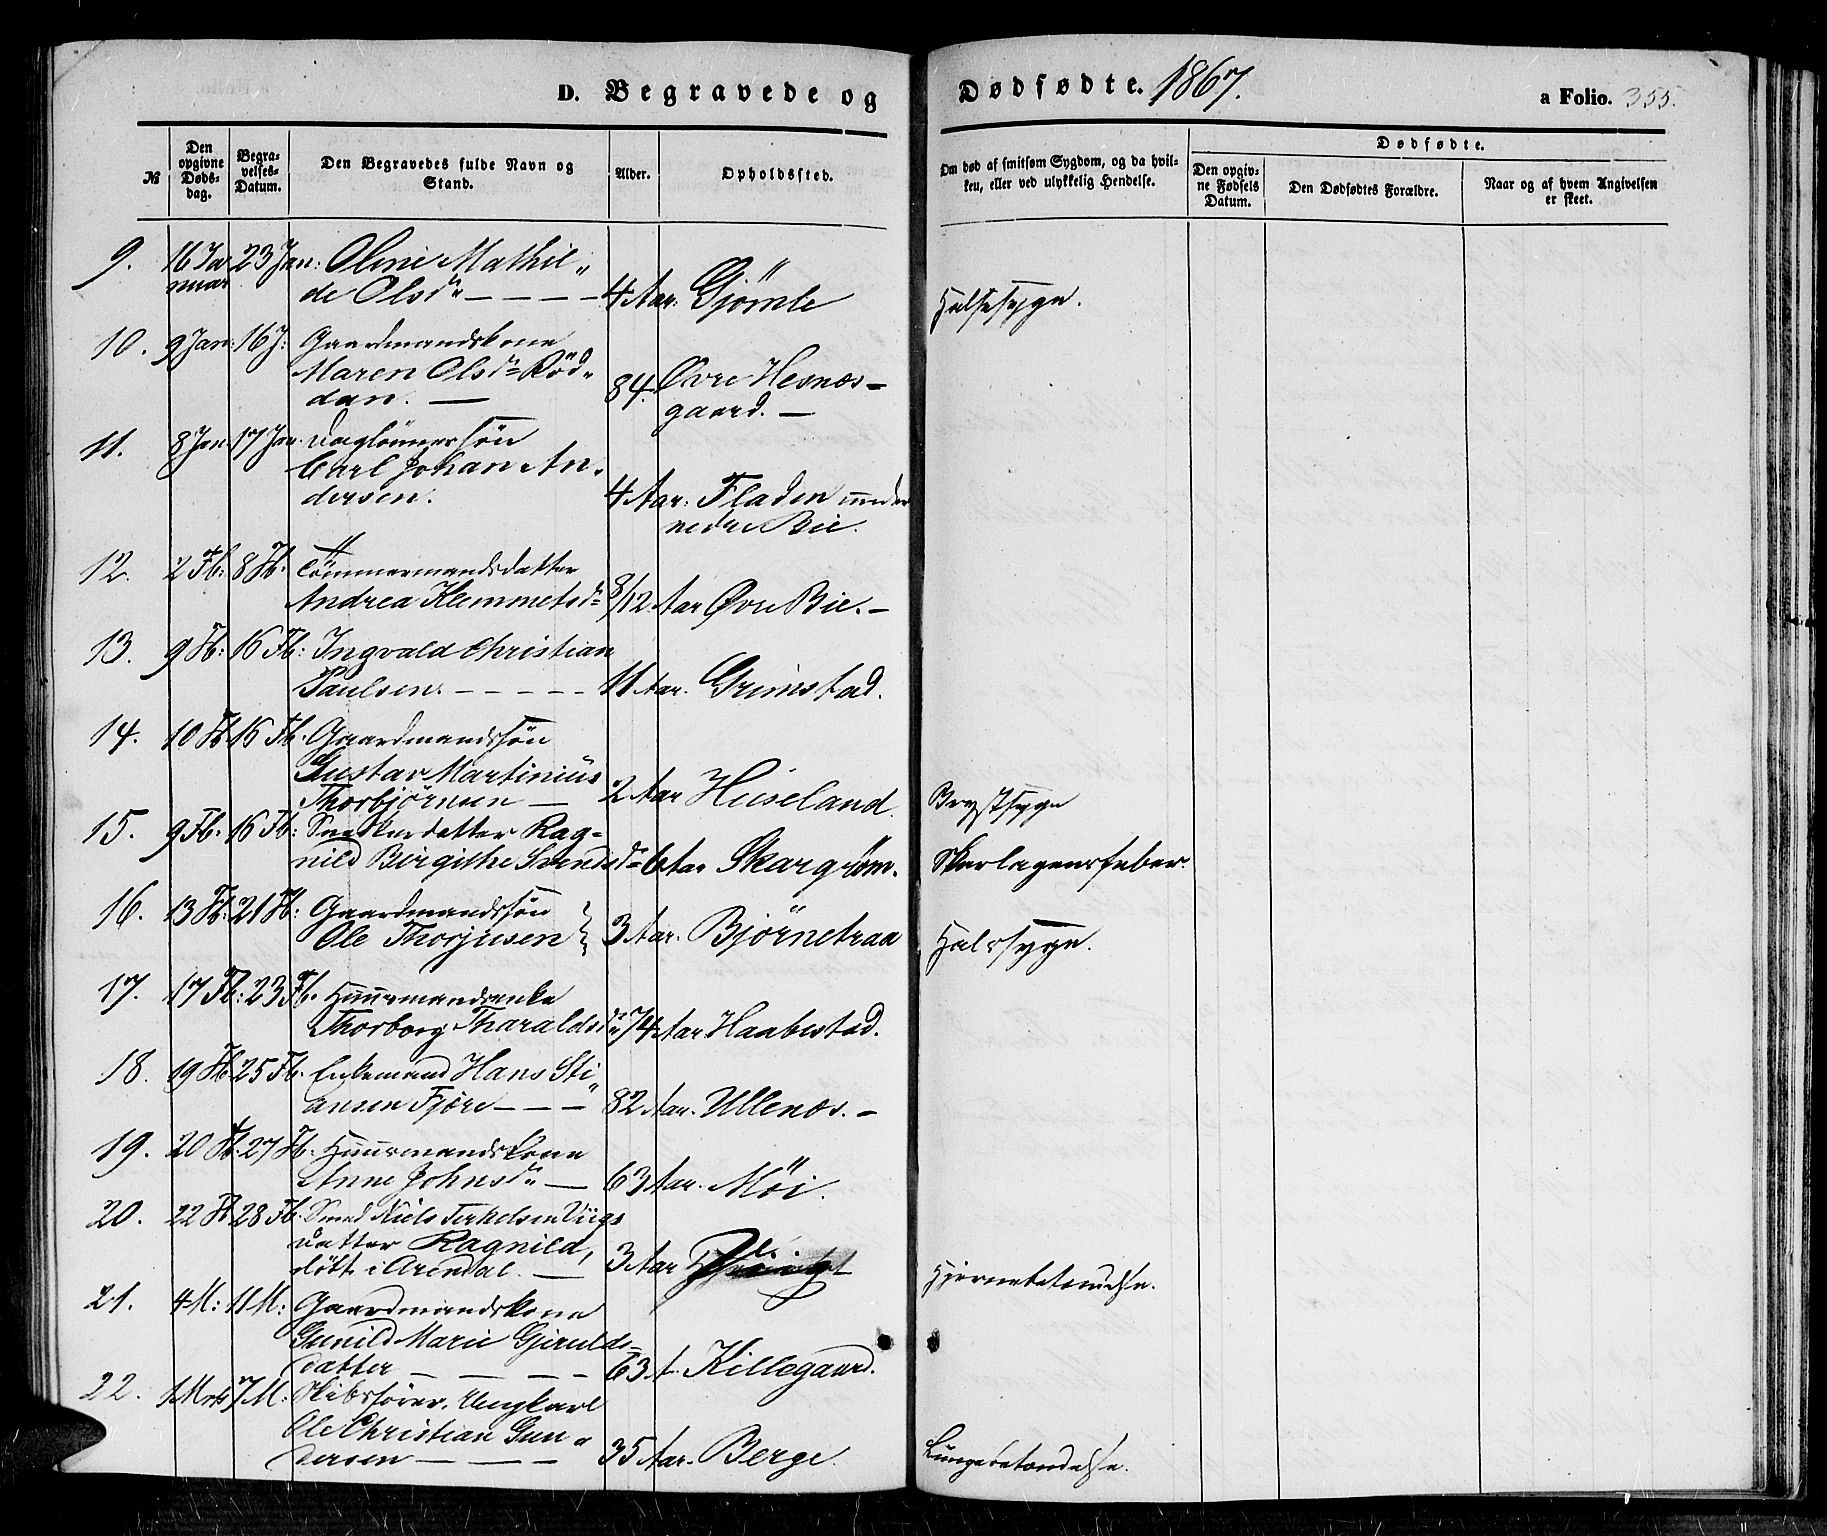 D. Begravede og Dødfødte. 1867.
a Folio. 355.
№
Den opgivne Døds-dag.
Begra-velses-Datum.
Den Begravedes fulde Navn og Stand.
Alder.
Opholdssted.
Om død af smitsom Sygdom, og da hvil-ken, eller ved ulykkelig Hendelse.
Dødfødte.
Den opgiv-ne Fødsels Datum.
Den Dødfødtes Forældre.
Naar og af hvem Angivelsen er skeet.
9. 16 Ja- 23 Jan: Oline Mathil-
nuar de Olsdr - - - - 4 Aar. Gjömle Halssyge.
10. 9 Jan: 16 J: Gaardmandskone
Maren Olsdr Röd-
dan. — 84. Øvre Hesnæs-
gaard. —
11. 8 Jan: 17 Jan. Daglönnersön
Carl Johan An-
dersen. 4 Aar. Fladen under
nedre Bie.
12. 2 Fb: 8 Fb. Tömmermandsdatter
Andrea Klemmetsdr 8/12 Aar Øvre Bie. —
13. 9 Fb: 16 Fb: Ingvald Christian
Paulsen. - - - - - 11 Aar. Grimstad.
14. 10 Fb. 16 Fb. Gaardmandssön
Gustav Martinius
Thorbjörnsen — 2 Aar Huseland. Brystsyge
15. 9 Fb: 16 Fb: Snedkerdatter Rag-
nild Birgithe Svendsdr 6 Aar Skargröm. Skarlagensfeber.
16. 13 Fb: 21 Fb: Gaardmandssön
Ole Thorjusen 3 Aar. Björnetraa Halssyge.
17. 17 Fb: 23 Fb. Huusmandsenke
Thorborg Tharaldsdr 74 Aar. Haabestad.
18. 19 Fb. 25 Fb. Enkemand Hans Sti-
ansen Fjære - - - 82 Aar. Ullenæs. —
19. 20 Fb: 27 Fb. Huusmandskone
Anne Johnsdr — 63 Aar. Möi.
20. 22 Fb 28 Fb. Smed Niels Terkelsen Viigs
Datter Ragnild,
døbt i Arendal. — 3 Aar Hjernebetændelse.
21. 4 M: 11 M: Gaardmandskone
Gunild Marie Gjeruldsdatter
- - - - 63 A. Killegaard.
22. 1 Mrts 7 M: Skibsfører, Ungkarl
Ole Christian Gun-
dersen - - - 35 Aar. Berge. Lungebetændelse.